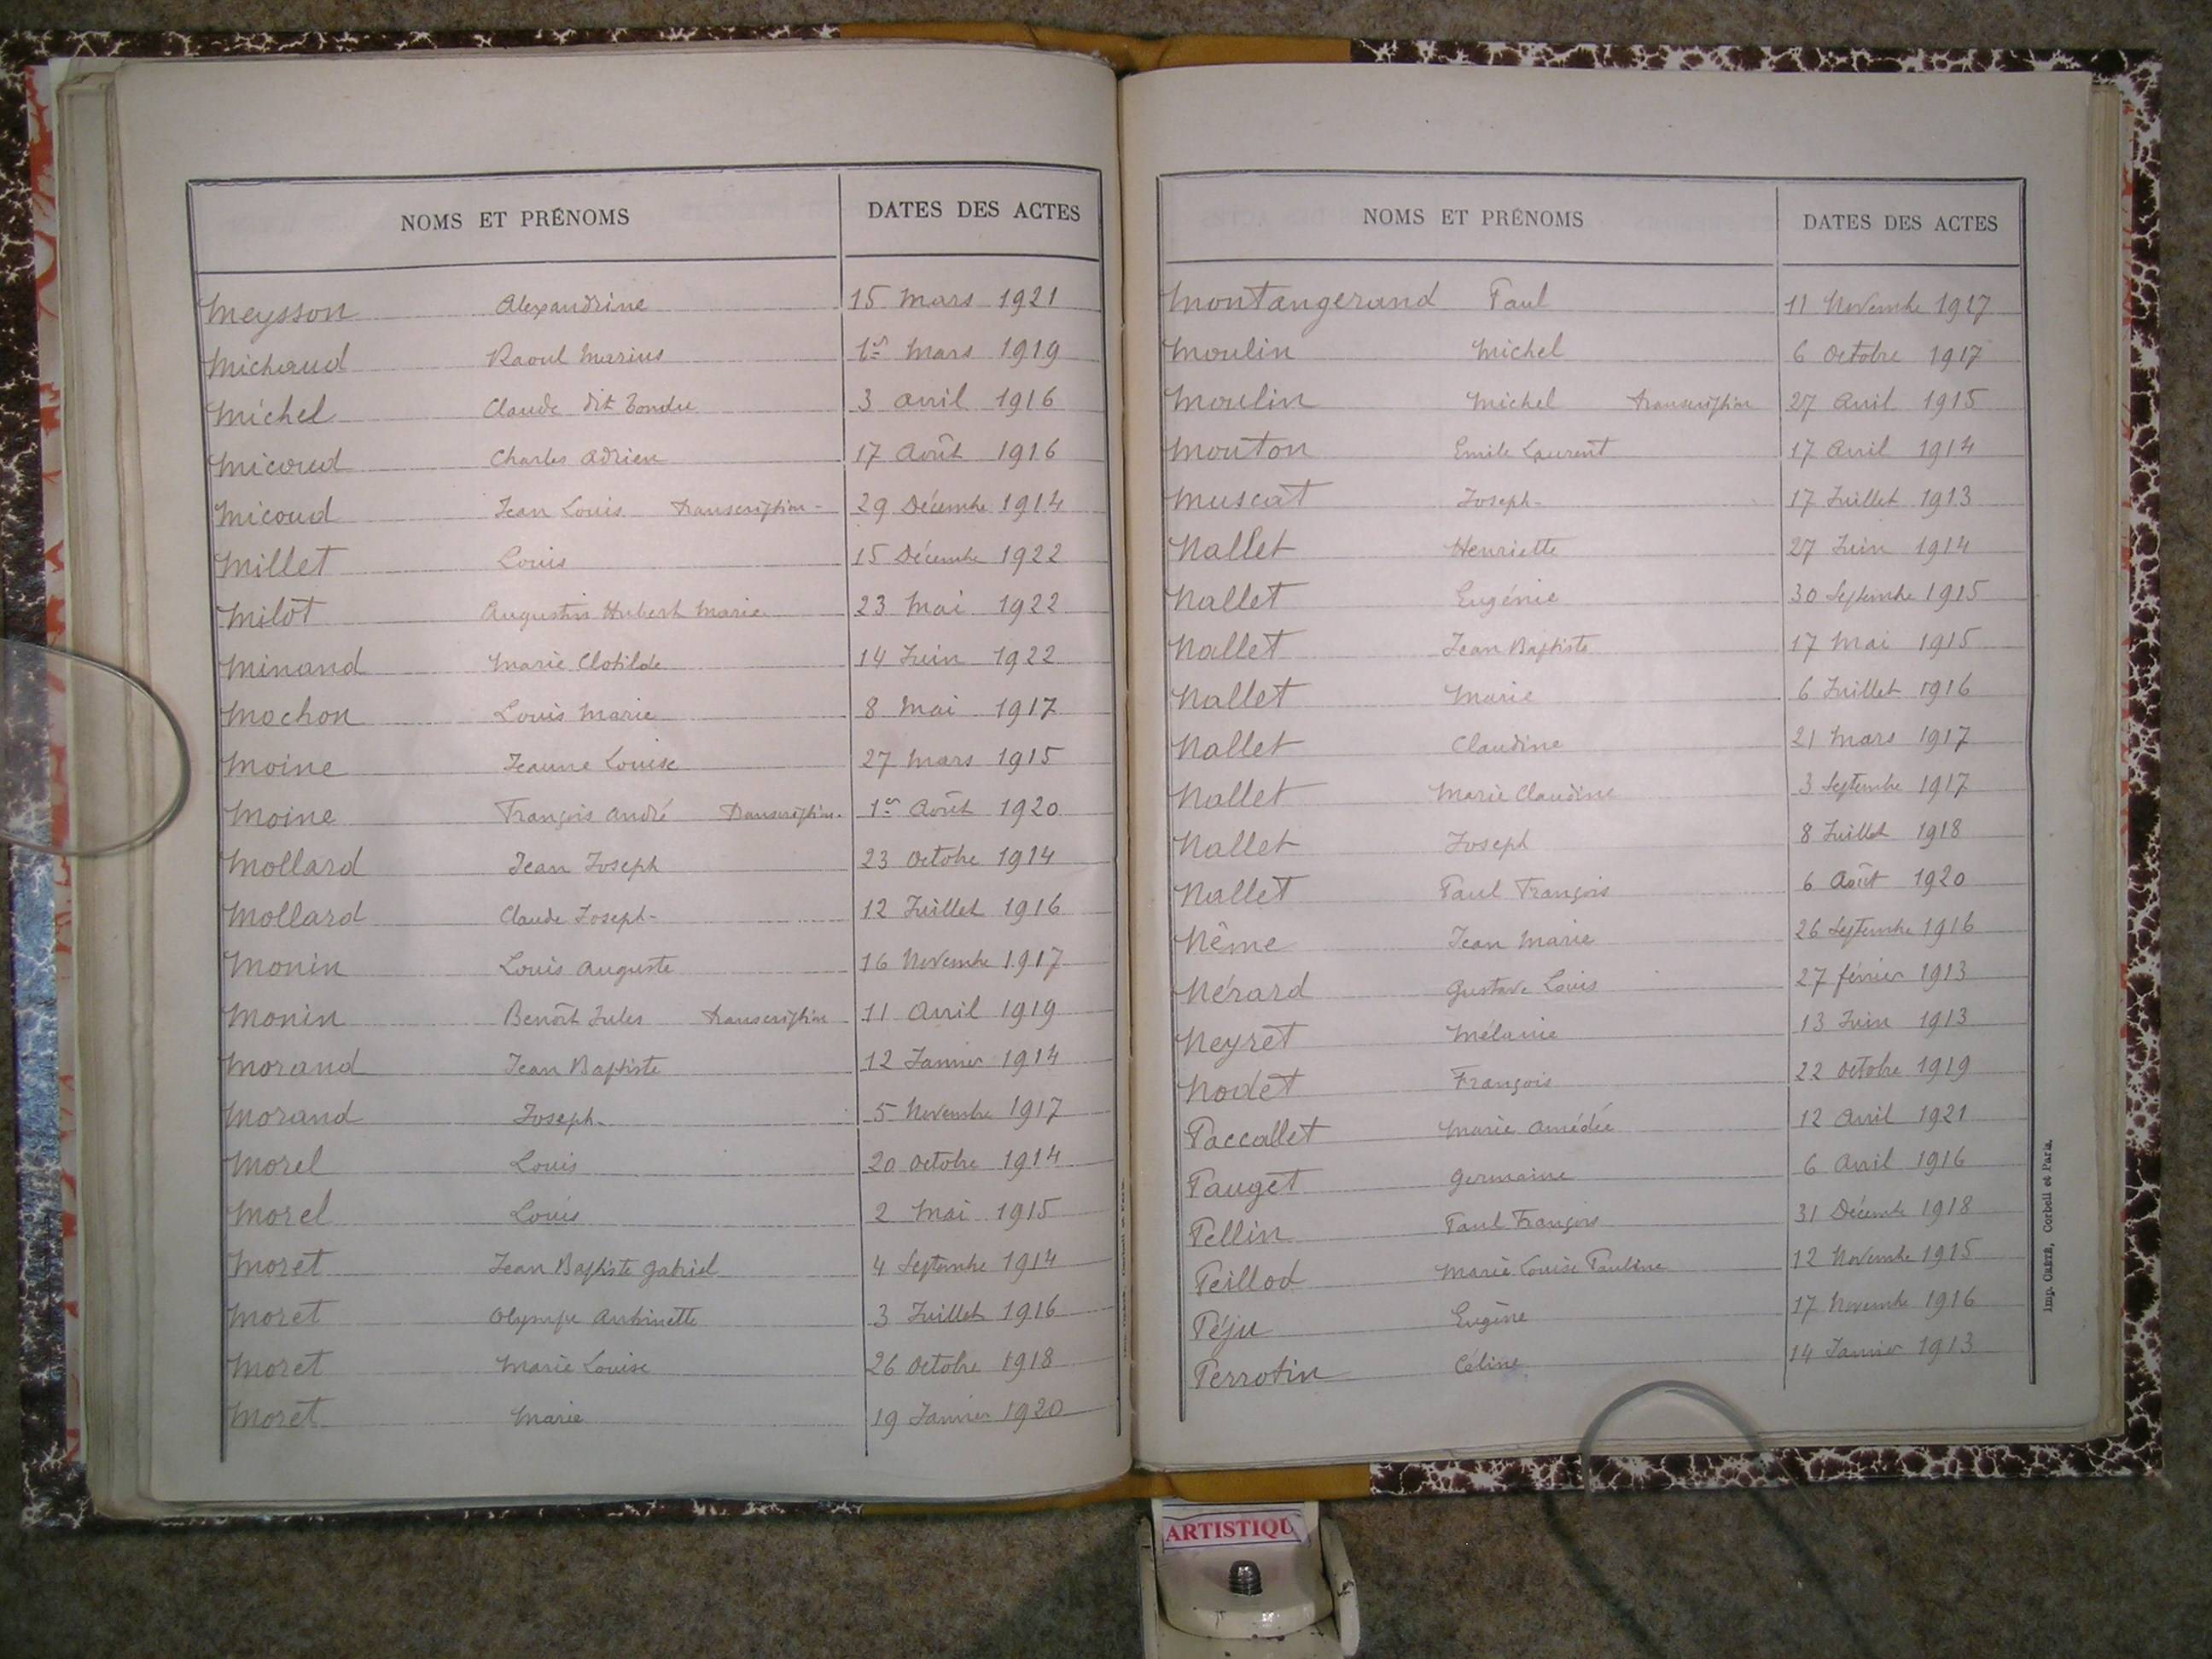 NOMS ET PRÉNOMS DATES DES ACTES
Meysson Alexandrine 15 Mars 1921
Michaud Raoul Marius 1er Mars 1919
Michel Claude dit 3 Avril 1916
Micoud Charles Adrien 17 Août 1916
Micoud Jean Louis Transcription - 29 Décembre 1914
Millet Louis 15 Décembre 1922
Milot Augustin Hubert Marie 23 Mai 1922
Minand Marie Clotilde 14 Juin 1922
Mochon Louis Marie 8 Mai 1917
Moine Jeanne Louise 27 Mars 1915
Moine François André Transcription. 1er Août 1920
Mollard Jean Joseph 23 Octobre 1914
Mollard Claude Joseph - 12 Juillet 1916
Monin Louis Auguste 16 Novembre 1917
Monin Benoît Jules Transcription 11 Avril 1919
Morand Jean Baptiste 12 Janvier 1914
Morand Joseph - 5 Novembre 1917
Morel Louis 20 Octobre 1914
Morel Louis 2 Mai 1915
Moret Jean Baptiste Gabriel 4 Septembre 1914
Moret Olympe Antoinette 3 Juillet 1916
Moret Marie Louise 26 Octobre 1918
Moret Marie 19 Janvier 1920
NOMS ET PRÉNOMS DATES DES ACTES
Montangerand Paul 11 Novembre 1917
Moulin Michel 6 Octobre 1917
Moulin Michel Transcription 27 Avril 1915
Mouton Emile Laurent 17 Avril 1914
Muscat Joseph - 17 Juillet 1913
Nallet Henriette 27 Juin 1914
Nallet Eugénie 30 Septembre 1915
Nallet Jean Baptiste 17 Mai 1915
Nallet Marie 6 Juillet 1916
Nallet Claudine 21 Mars 1917
Nallet Marie Claudine 3 Septembre 1917
Nallet Joseph 8 Juillet 1918
Nallet Paul François 6 Août 1920
Nême Jean Marie 26 Septembre 1916
Nérard Gustave Louis 27 février 1913
Neyret Mélanie 13 Juin 1913
Nodet François 22 Octobre 1919
Paccallet Marie Amédée 12 Avril 1921
Pauget Germaine 6 Avril 1916
Pellin Paul François 31 Décembre 1918
Peillod Marie Louise Pauline 12 Novembre 1915
Péju Eugène 17 Novembre 1916
Perrotin Céline 14 Janvier 1913
Imp. CRÉTÉ, Corbeil et Paris.
ARTISTIQU